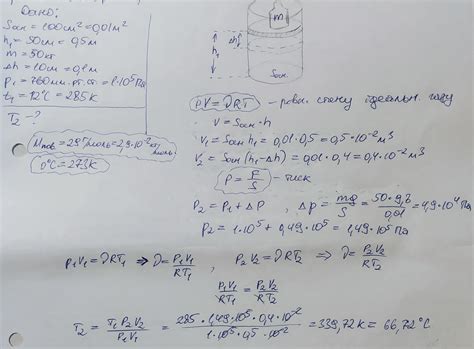 Дано:
Sосн = 100см² = 0,01м²
h₁ = 50см = 0,5м
m = 50кг
Δh = 10см = 0,1м
P₁ = 760мм.рт.ст. = 1·10⁵Па
t₁ = 12°C = 285K
T₂ - ?
0°C = 273K
m
Δh
h₁
Sосн
PV = νRT
V = Sосн·h
V₁ = Sосн h₁ = 0,01·0,5 = 0,5·10⁻²м³
V₂ = Sосн (h₁-Δh) = 0,01·0,4 = 0,4·10⁻²м³
P = F/S - тиск
P₂ = P₁ + ΔP , Δp = mg/S = 50·9,8/0,01 = 4,9·10⁴Па
P₂ = 1·10⁵ + 0,49·10⁵ = 1,49·10⁵Па
P₁V₁ = νRT₁ ⇒ ν = P₁V₁/RT₁ , P₂V₂ = νRT₂ ⇒ ν = P₂V₂/RT₂
P₁V₁/RT₁ = P₂V₂/RT₂
T₂ = T₁P₂V₂/P₁V₁ = 285·1,49·10⁵·0,4·10⁻²/1·10⁵·0,5·10⁻² = 339,72K = 66,72°C